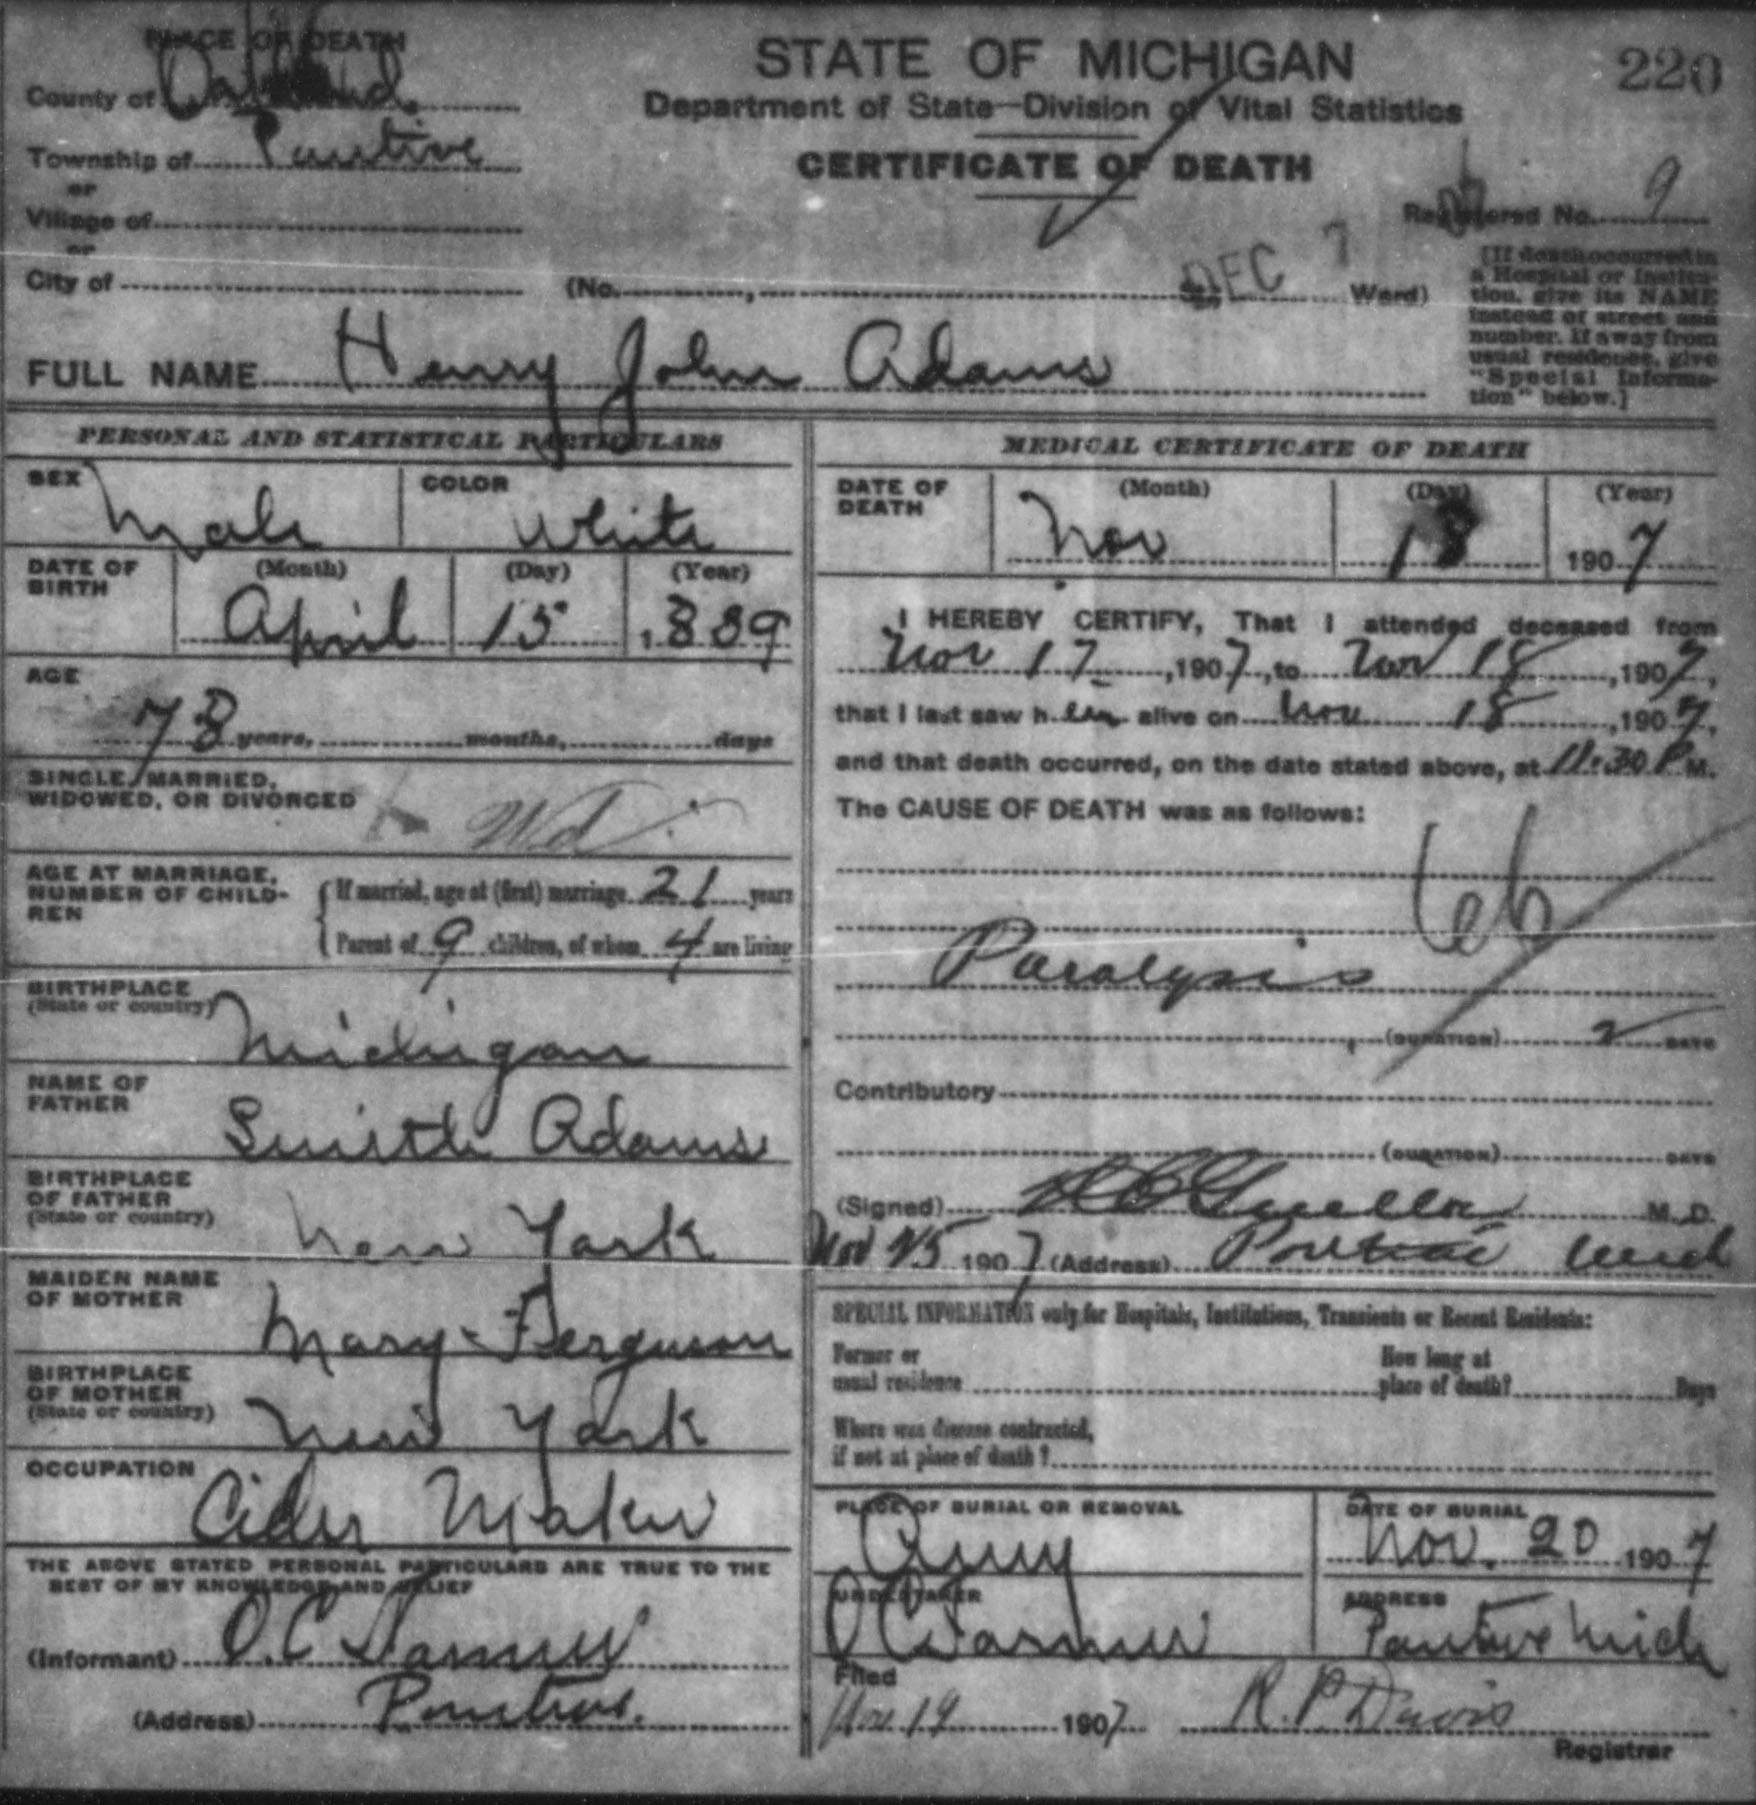 PLACE OF DEATH
County of Oakland
Township of Pontiac
or
Village of
or
City of
STATE OF MICHIGAN
Department of State—Division of Vital Statistics
CERTIFICATE OF DEATH
220
Registered No. 9
(No. , Ward)
DEC 7
[If death occurred in
a Hospital or Institu-
tion, give its NAME
instead of street and
number. If away from
usual residence, give
"Special Informa-
tion" below.]
FULL NAME Henry John Adams
PERSONAL AND STATISTICAL PARTICULARS
SEX Male
COLOR White
DATE OF BIRTH (Month) April (Day) 15 (Year)
AGE
78 years, months, days
SINGLE, MARRIED,
WIDOWED, OR DIVORCED Wd
AGE AT MARRIAGE,
NUMBER OF CHILD-
REN
If married, age at (first) marriage 21 years
Parent of 9 children, of whom 4 are living
BIRTHPLACE
(State or country)
Michigan
NAME OF
FATHER
Smith Adams
BIRTHPLACE
OF FATHER
(State or country)
New York
MAIDEN NAME
OF MOTHER
Mary Ferguson
BIRTHPLACE
OF MOTHER
(State or country)
New York
OCCUPATION
Cider Maker
THE ABOVE STATED PERSONAL PARTICULARS ARE TRUE TO THE
BEST OF MY KNOWLEDGE AND BELIEF
(Informant) O.C.
(Address) Pontiac
MEDICAL CERTIFICATE OF DEATH
DATE OF DEATH (Month) Nov (Day) 18 (Year) 1907
I HEREBY CERTIFY, That I attended deceased from
Nov 17, 1907, to Nov 18, 1907,
that I last saw him alive on Nov 18, 1907,
and that death occurred, on the date stated above, at 11.30 P M.
The CAUSE OF DEATH was as follows:
Paralysis
(DURATION) 2 DAYS
Contributory
(DURATION) DAYS
(Signed) M. D.
Nov 1907 (Address) Pontiac Mich
SPECIAL INFORMATION only for Hospitals, Institutions, Transients or Recent Residents:
Former or
usual residence
How long at
place of death? Days
Where was disease contracted,
if not at place of death?
PLACE OF BURIAL OR REMOVAL
DATE OF BURIAL
Nov. 20 1907
UNDERTAKER
ADDRESS
Pontiac Mich
Filed
Nov 19 1907 R. P. Davis
Registrar